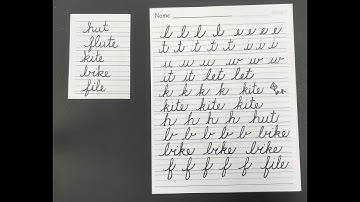 hut
flute
kite
bike
file
Name
l l l l e e e e
t t t t t i i i i
u u u u w w w
it it let let
k k k k kite
kite kite kite
h h h h hut
b b b b b bike
bike bike bike
f f f f f file